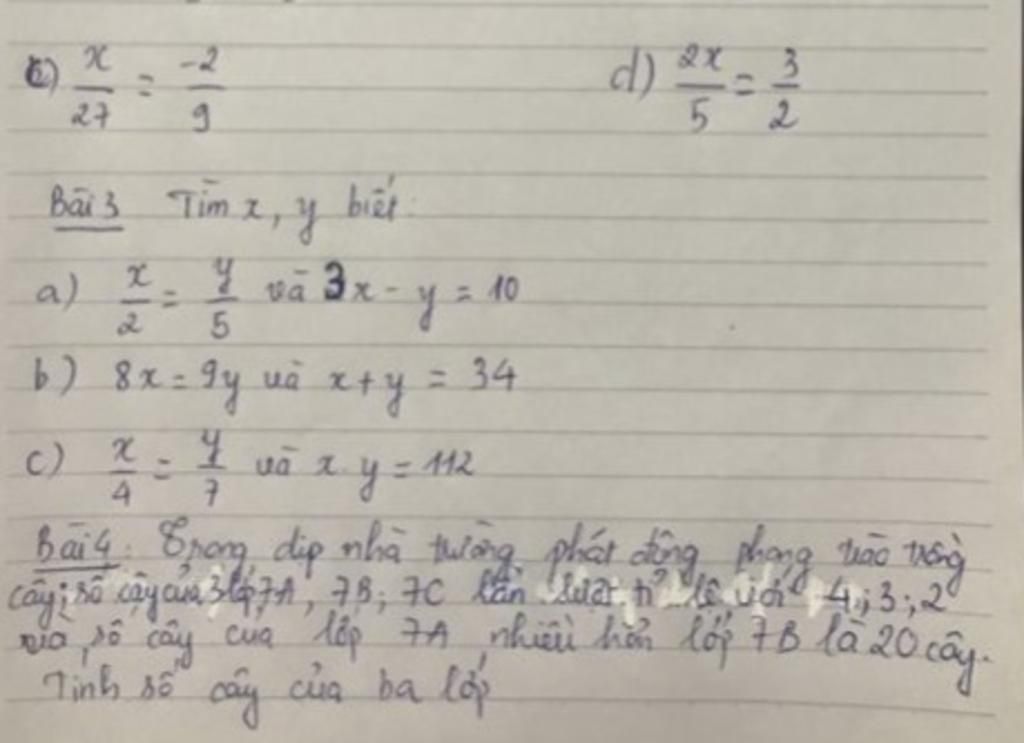 c) x/27 = -2/9 d) 2x/5 = 3/2
Bài 3 Tìm x, y biết:
a) x/2 = y/5 và 3x - y = 10
b) 8x = 9y và x + y = 34
c) x/4 = y/7 và x.y = 112
Bài 4: Trong dịp nhà trường phát động phong trào trồng
cây; số cây của 3 lớp 7A, 7B; 7C lần lượt tỉ lệ với 4; 3; 2
và số cây của lớp 7A nhiều hơn lớp 7B là 20 cây.
Tính số cây của ba lớp